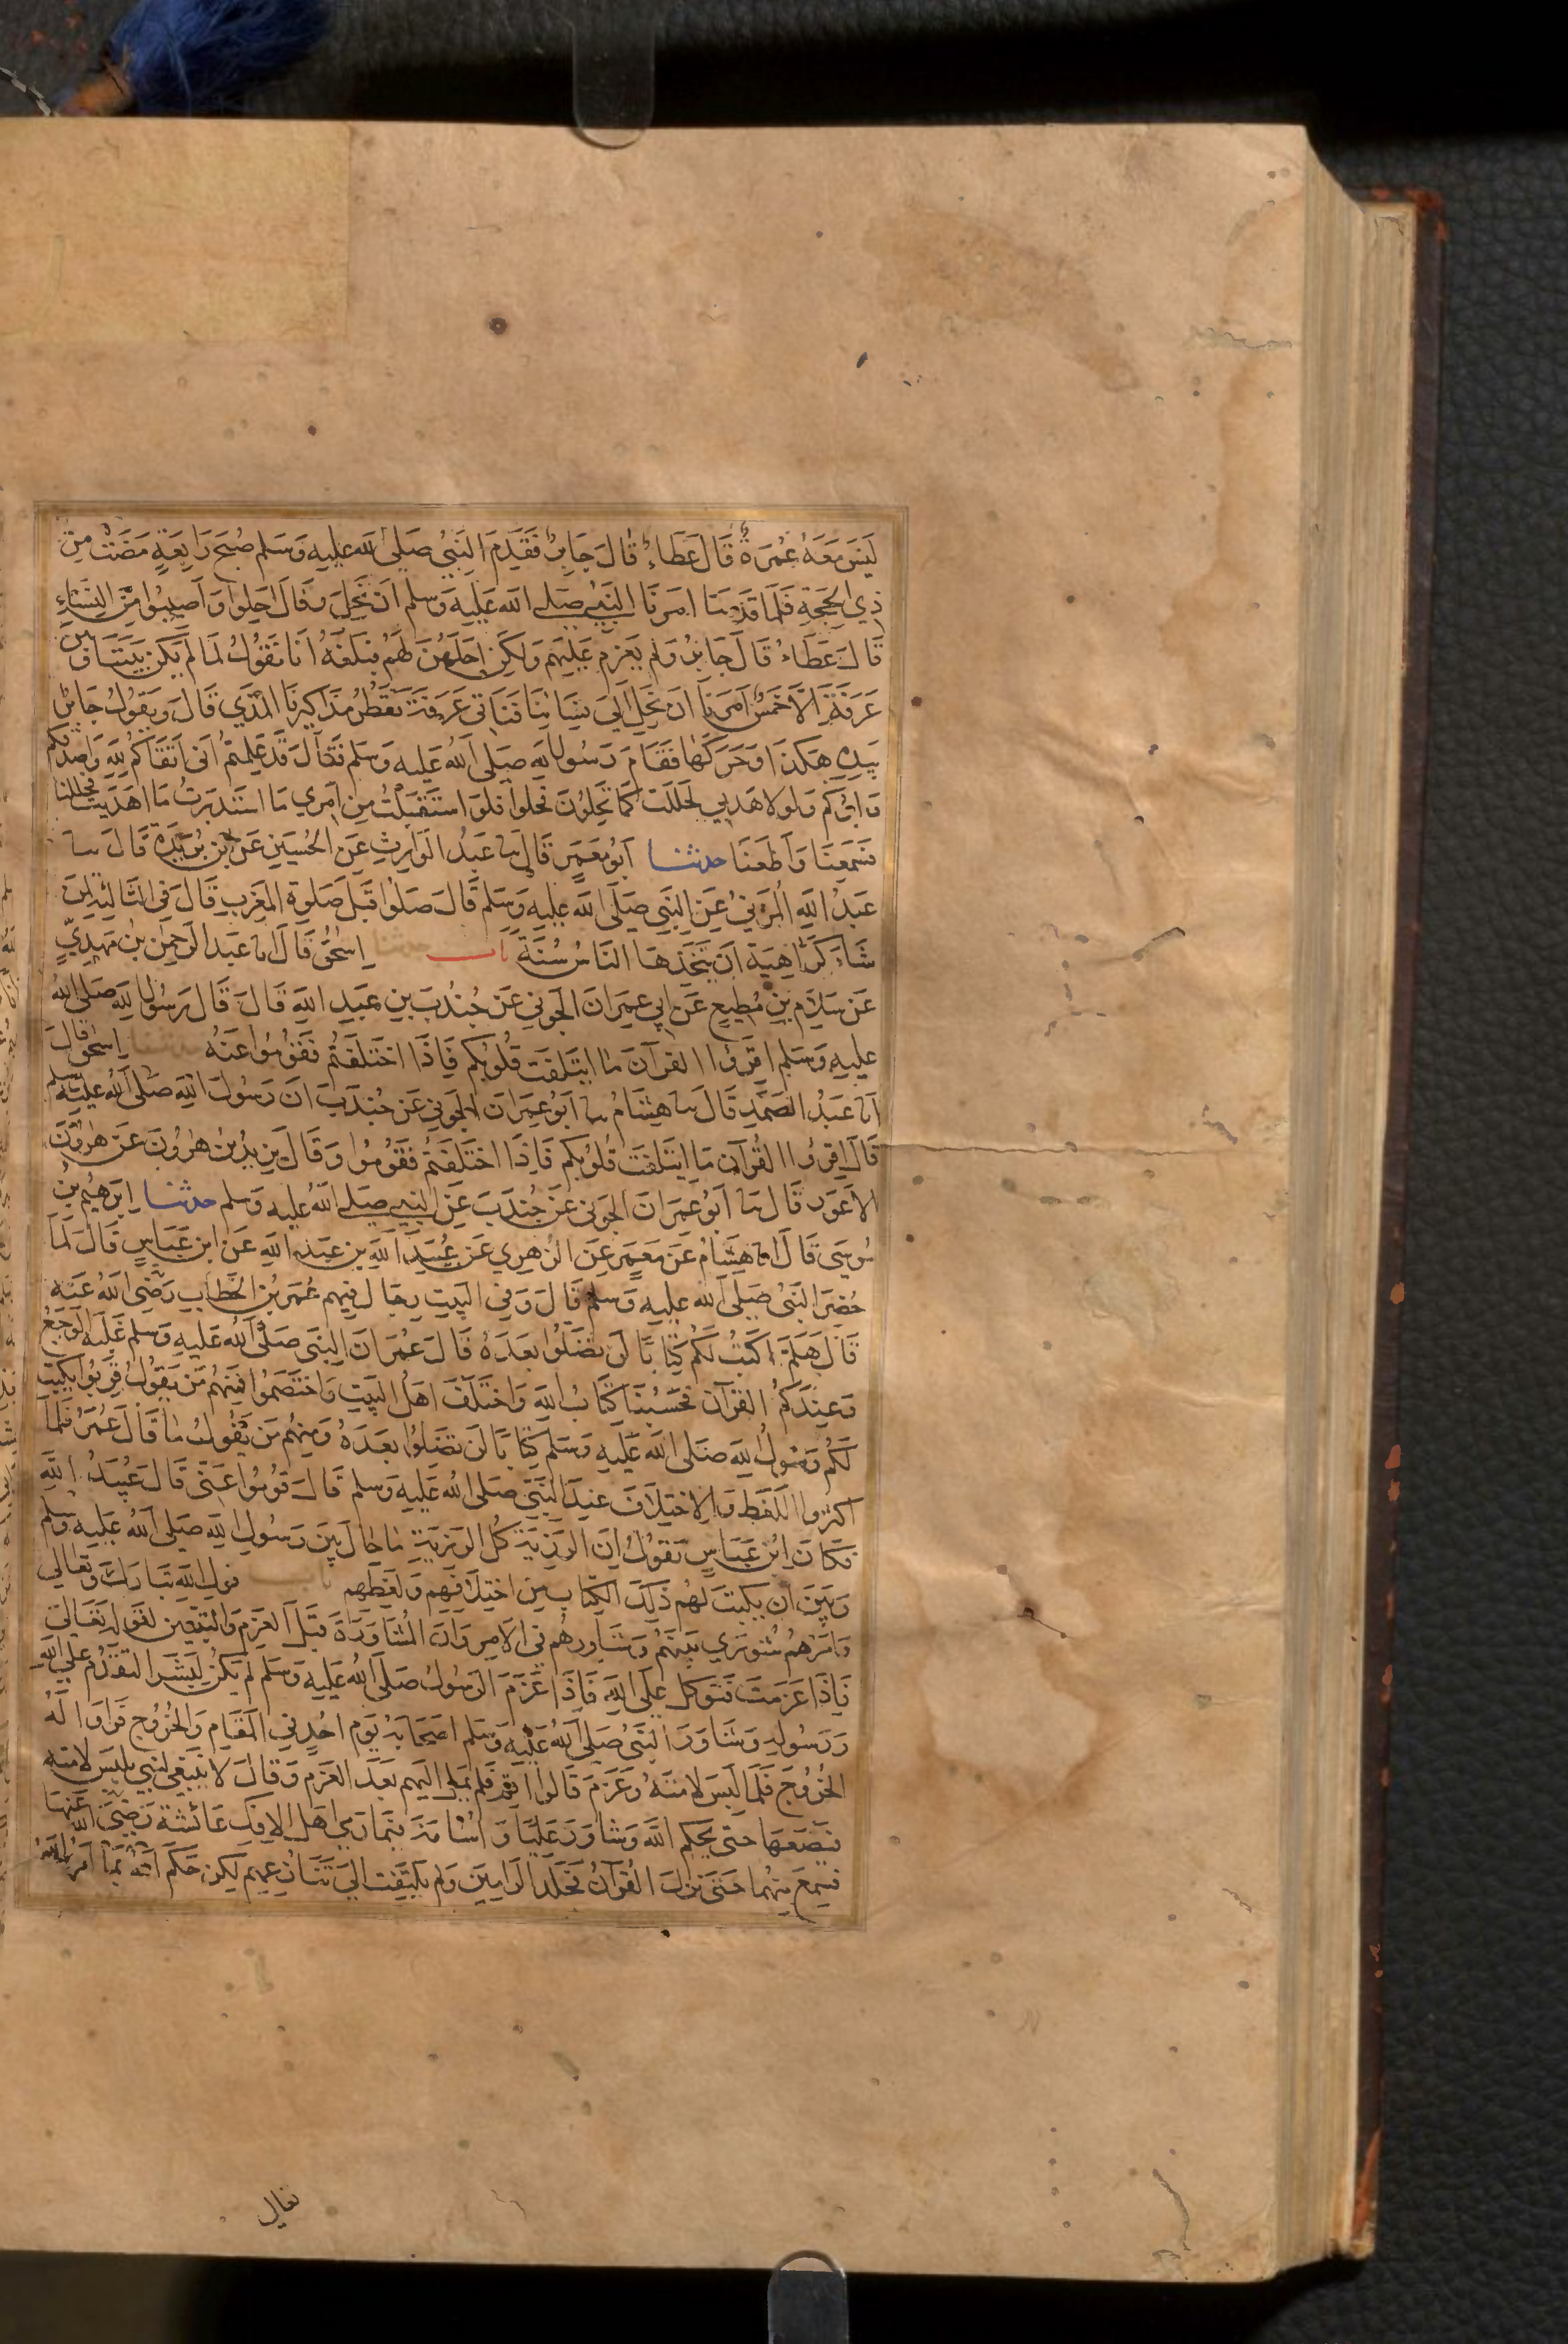 لَيْسَ مَعَهُ عُمْرَةٌ قَالَ عَطَاءٌ قَالَ جَابِرٌ فَقَدِمَ النَّبِيُّ صَلَى الله عَلَيهِ وَسَلم صُبحَ رَابِعَةٍ مَضَتْ مِنْ
ذِي الحِجَّةِ فَلَمَا قَدِمْنَا امَرنَا النَّبِيُّ صَلى الله عَلَيهِ وَسلم انْ نَحِلَّ وقَالَ احِلُوا وَاَصِيبُوا مِنَ النِّسَاءِ
قَالَ عَطَاءٌ قَالَ جَابِرٌ وَلم يَعزِم عَلَيهِم وَلكِن احَلَّهُنَّ لهُم فبَلغَهُ انَا نَقُولُ لمَا لَم يَكُن بَيْنَنَا وَبَيْنَ
عَرَفَةَ الاَّ خَمْسٌ اَمَرنَا ان نَحِلَّ اِلَى نِسَائِنَا فَنَاتى عَرَفَةَ تقطُرُ مَذَاكِيرنَا المَذيَ قَالَ وَيَقُولُ جَابِرٌ
بيَدِهِ هَكذَا وَحَرَّكَهَا فَقَامَ رَسُول الله صَلَى الله عَليه وَسَلم فَقَالَ قَد عَلِمتُم اَنى اَتقَاكُم لِلَّهِ وَاصْدَقكم
وَابَرُّكم وَلولا هَديي لحَللتُ كَمَا تَحِلوُنَ فحلوا فلَو استَقبَلتُ مِن امري مَا استَدبَرتُ مَا اهدَيتُ فحللنا
فَسَمِعنَا وَاَطَعنَا حدثنا اَبُو مَعمَرٍ قَالَ ثنا عَبدُ الوَارِثِ عَنِ الحُسَينِ عَنِ ابن بُرَيدَةَ قَالَ ثنا
عَبدُ اللهِ المُزَنِيُّ عَنِ النَّبِي صَلَى الله عَليهِ وَسَلم قَالَ صَلُوا قَبلَ صَلوةِ المَغرِبِ قَالَ فى الثالِثَةِ لِمَن
شَاءَ كَرَاهِيَةَ ان يَتَّخِذَهَا النَّاسُ سُنَّةً باب حدثنا اِسحٰق قَالَ انا عَبد الرحمٰن بن مَهدِيٍّ
عَن سَلاَّمِ بنِ مُطِيعٍ عَن ابي عِمرَانَ الجوني عَن جُندُبَ بن عَبدِ اللهِ قَالَ قَالَ رَسُول اللهِ صَلى الله
عليهِ وَسَلم اقرَؤُا القرآنَ مَا ائتَلَفَت قُلُوبُكم فَاِذَا اختَلَفتُم فَقُومُوا عَنهُ حدثنا اسحٰق قَالَ
انا عَبدُ الصَّمَدِ قَالَ ثنا هِشَامٌ ثنا ابُو عِمرَانَ الجَوني عَن جُندَبَ ان رَسُولَ اللهِ صَلى الله عليهِ وسلم
قَالَ اقرؤُا القُرآن مَا ائتَلفَت قُلُوبُكم فَاِذَا اختَلَفتُم فَقُومُوا وَقَالَ يَزِيدُ بن هٰرُونَ عَن هٰرُونَ
الاَعوَرِ قَالَ ثنا اَبُو عِمرَانَ الجَوني عَن جُندَبَ عَنِ النبي صَلى الله عليه وَسلم حدثنا اِبرٰهِيمُ بنُ
مُوسَى قَالَ انا هِشَامٌ عَن مَعمَرٍ عَنِ الزُهري عَن عُبَيدِ اللهِ بن عَبدِ اللهِ عَن ابن عَبَاسٍ قَالَ لَمَا
حُضِرَ النَّبيُّ صَلَى الله عليهِ وَسَلم قَالَ وَفي البَيتِ رِجَال فِيهم عُمَرُ بن الخَطابِ رَضِيَ اللهُ عَنهُ
قَالَ هَلمَّ اَكتُب لَكُم كِتَابًا لَن تَضِلُوا بَعدَهُ قَالَ عُمَرُ انَ النبَي صَلى الله عَلَيهِ وَسلم غَلَبَهُ الوَجَعُ
وَعِندَكُمُ القُرآن فَحَسبُنَا كِتَابُ اللهِ وَاختَلَفَ اهَلُ البَيتِ وَاختَصَمُوا فَمِنهُم مَن يَقُولُ قَرِّبُوا يَكتُب
لَكُم رَسُولُ اللهِ صَلى الله عَليهِ وَسَلم كِتَابًا لَن تَضِلُوا بَعدَهُ وَمِنهُم مَن يَقُولُ مَا قَالَ عُمَرُ فَلمَا
اَكثَرُوا اللَّغَطَ وَالاختِلاَفَ عِندَ النَّبَيّ صَلى الله عَلَيهِ وَسلم قَالَ قُومُوا عَنّي قَالَ عُبَيدُ اللهِ
فكَانَ ابن عَبَاسٍ يَقُولُ ان الرَزِيَّةَ كُلَّ الرَزيَّةِ مَا حَالَ بَينَ رَسُولِ اللهِ صَلى الله عَليهِ وَسلم
وَبَينَ ان يكتُبَ لهُم ذلِكَ الكِتَابَ مِن اختِلاَفِهِم وَلَغَطِهِم باب قول الله تَبَارَكَ وَتعَالى
وَامرُهُم شُورَى بَينَهُم وَشَاوِرهُم في الامرِ وَانَّ المُشَاوَرَةَ قَبلَ العَزمِ وَالتَبَيُّنِ لقَولِهِ تعَالى
فَاِذَا عَزَمتَ فَتَوَكل عَلَى اللهِ فَاِذَا عَزَمَ الرَسُولُ صَلى الله عَليهِ وَسَلم لم يَكُن لِبَشَرٍ التقَدُّمُ على الله
وَرَسُولِهِ وَشَاوَرَ النَبَيُّ صَلى الله عَليهِ وَسَلم اصَحَابَهُ يَوم احُدٍ في المقَامِ وَالخُرُوجِ فَرَاوا لَهُ
الخُرُوجَ فَلَمَا لَبِسَ لامَتَهُ وَعَزَمَ قَالُوا اَقِم فَلَم يَمِل اِلَيهِم بَعدَ العَزمِ وَقَالَ لا يَنبَغي لنَبي يلبَسُ لامتَهُ
فَيَضَعهَا حَتى يحكُم اللهُ وَشَاوَرَ عَليًّا وَاُسَامَةَ فيمَا رَمى اهَل الافكِ عَائشَةَ رَضِيَ الله عَنهَا
فسَمِعَ مِنهُما حَتى نَزَلَ القُرآنُ فَجَلَدَ الرَامِينَ وَلم يَلتَفِت الى تَنَازُعِهِم لكِن حَكَمَ بمَا امرهُ اللهُ
تعالى